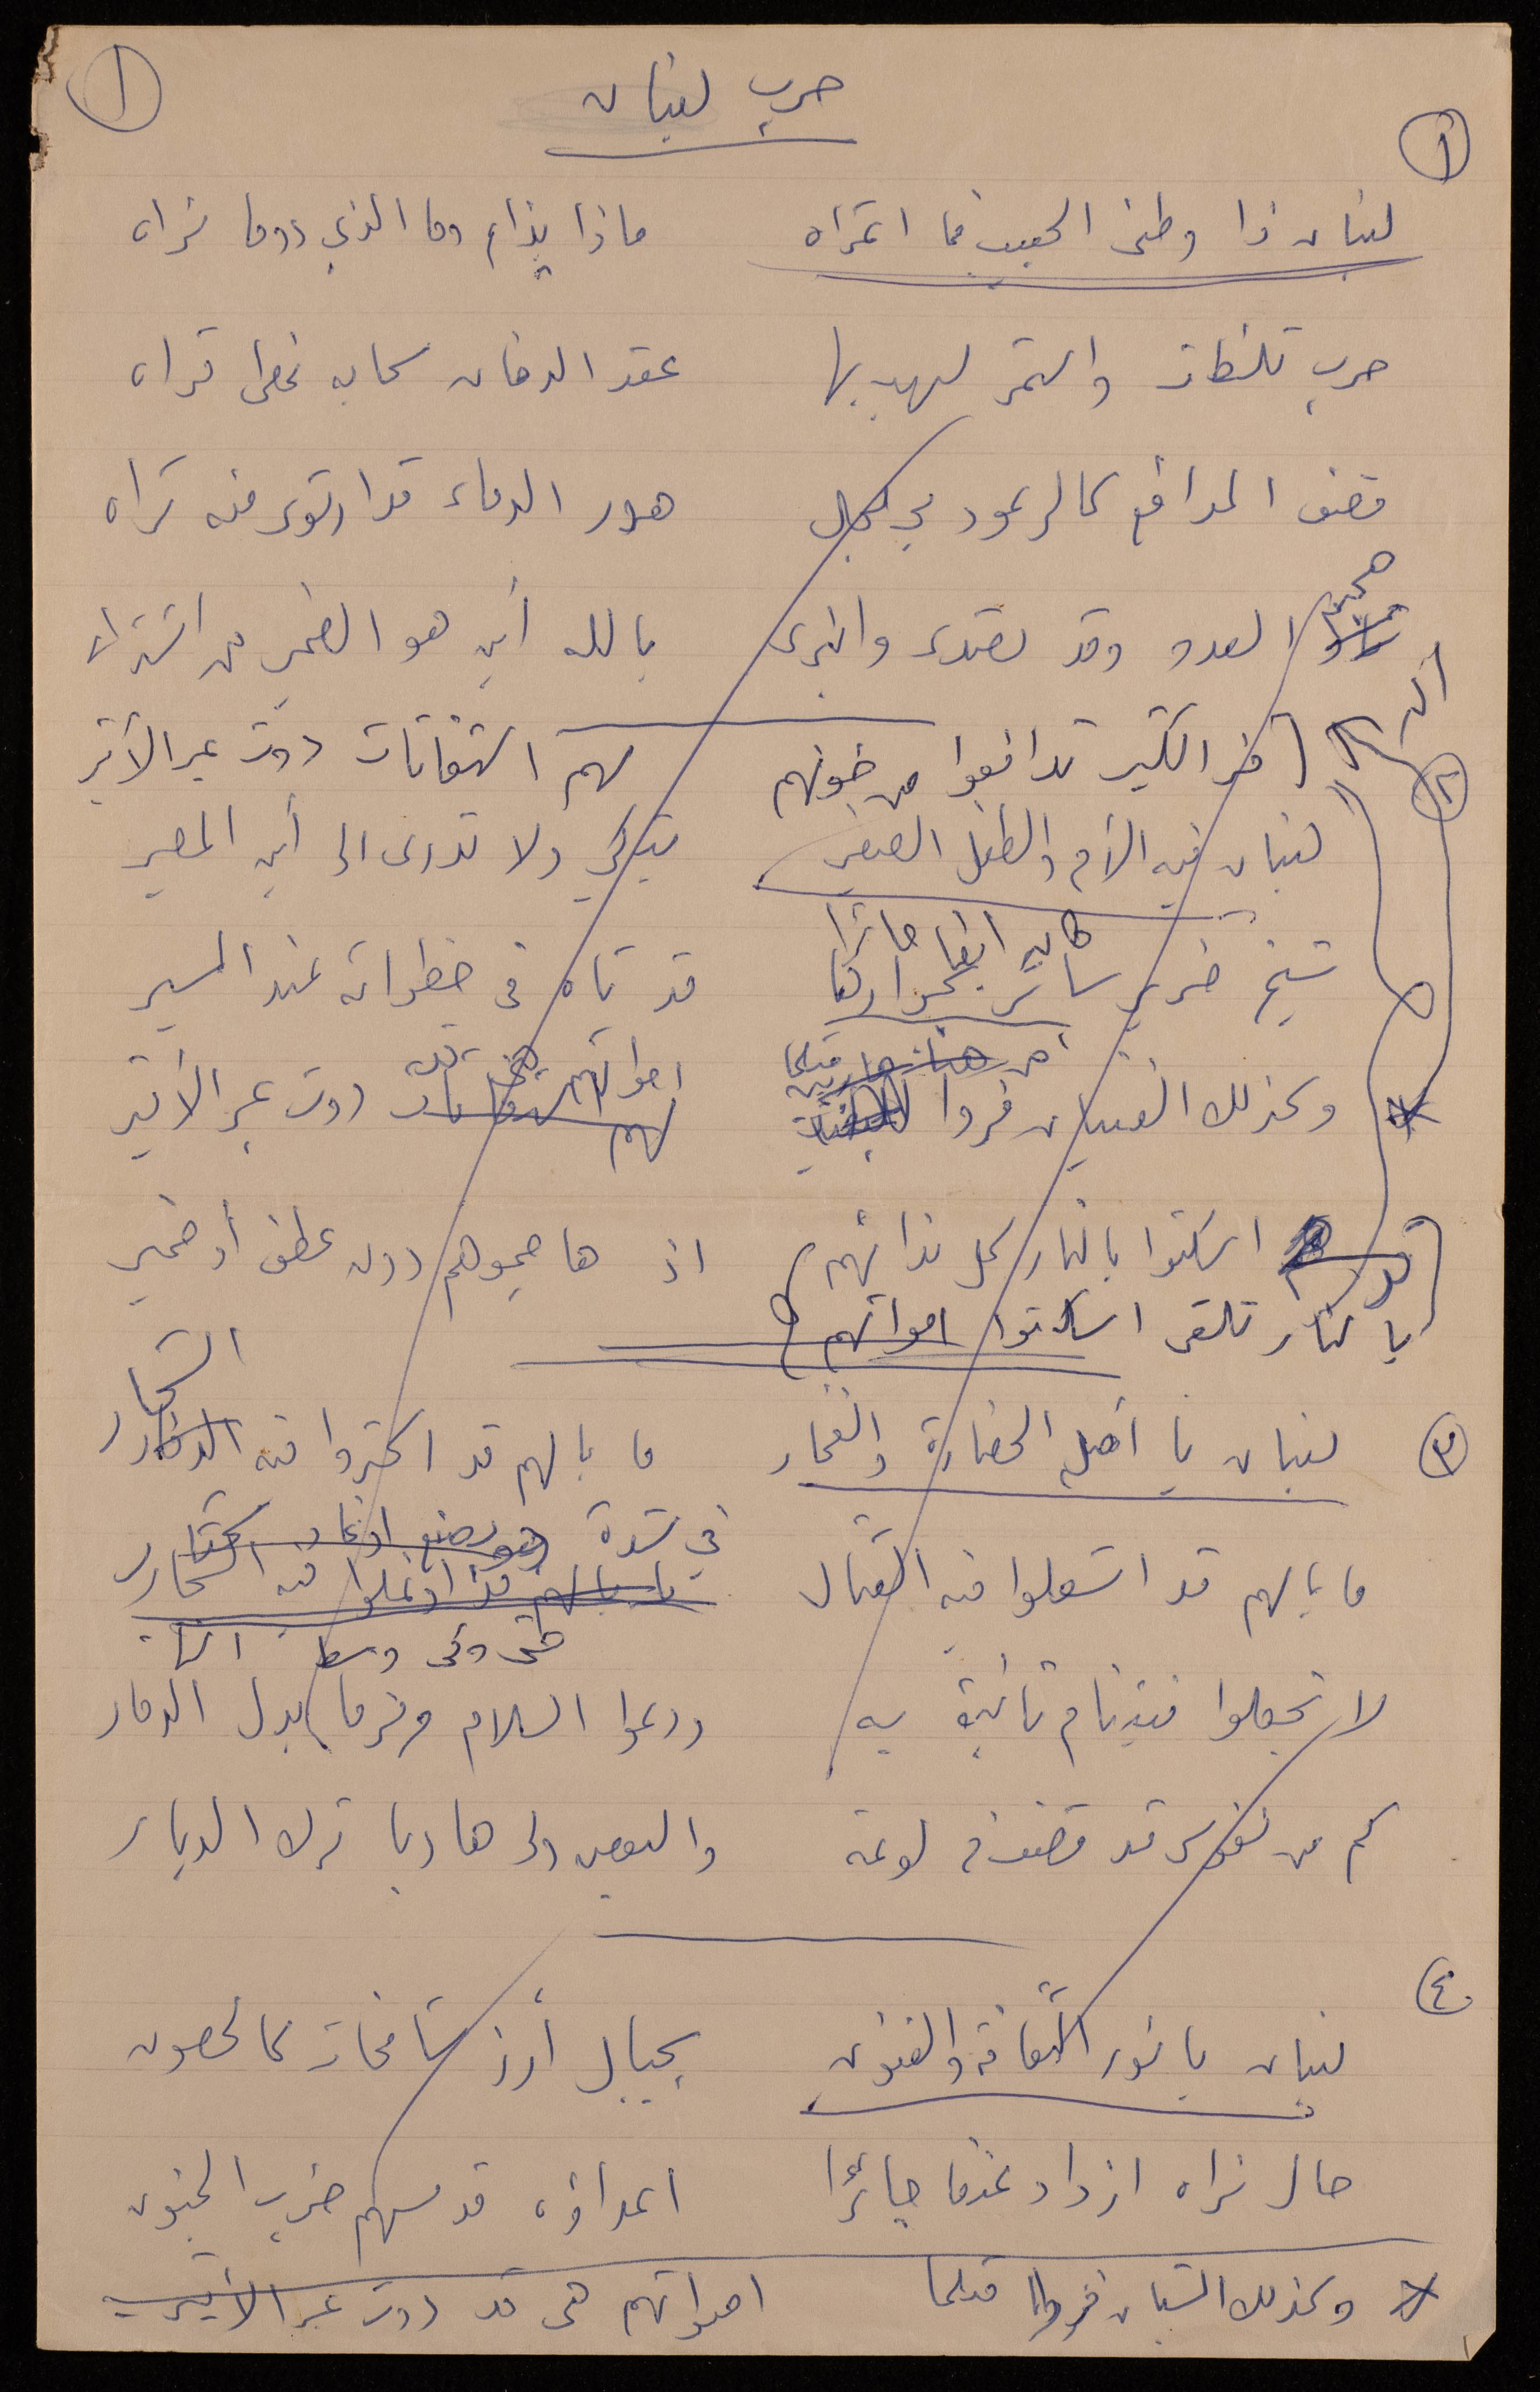 حرب لبنان
١
١
لبنان ذا وطني الحبيب فما اعتراه ماذا يذاع وما الذي دوما نراه
حرب تلظت واستمر لهيبها عقد الدخان سحابه غطى قراه
قصف المدافع كالرعود مجلجل هدر الدماء قد ارتوى منه ثراه
هجم العدو وقد تصدى وانبرى بالله أين هو الضمير من اشتراه
فر الكثير تدافعوا من خوفهم لهم استغاثات دوت عبر الأثير
٢
لبنان فيه الأم والطفل الصغير تبكي ولا تدري الى أين المصير
كان ايضا حائرا
شيخ ضرير سائر بجوارها قد تاه في خطواته عند المسير
وكذلك الفتيان فروا قبلما اصواتهم دوت عبر الأثير
لهم استغاثات
قد اسكتوا بالنار كل ندائهم اذ هاجموهم دون عطف أو ضمير
بالنار تلقى اسكتوا اصواتهم
٣
لبنان يا أصل الحضارة والفخار ما بالهم قد اكثروا فيه الشجار
ما بالهم قد اشعلوا فيه القتال في شدة
ما بالهم قد ادخلوا فيه
حتى وفى وسط النهار
لا تجعلوا فيتنام ثانية به ودعوا السلام مرفرفا بدل الدمار
كم من نفوس قد قضت في لوعة والبعض ولى هاربا ترك الديار
٤
لبنان يا نور الثقافة والفنون بجبال أرز شامخات كالحصون
حال نراه ازداد عنفا جائرا اعداؤه قد مسهم ضرب الجنون
وكذلك الشبان فروا قبلما اصواتهم هى قد دوت عبر الأثير